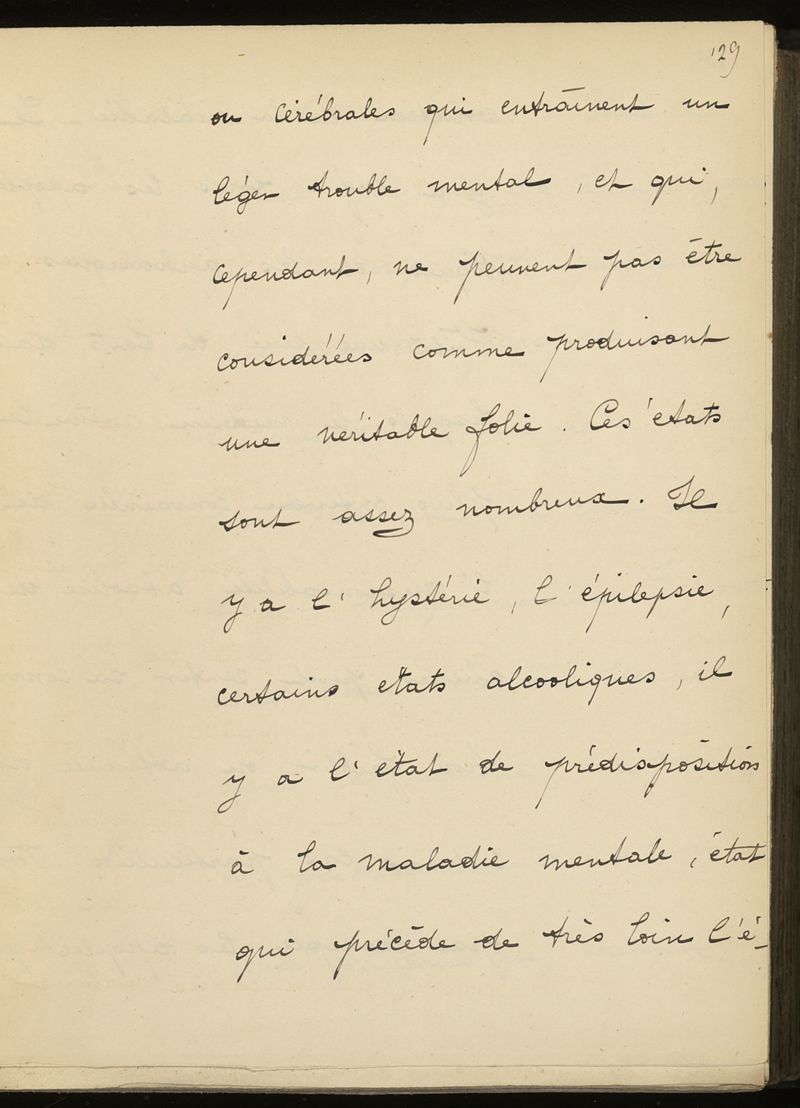 129
ou cérébrales qui entraînent un
léger trouble mental, et qui,
cependant, ne peuvent pas être
considérées comme produisant
une véritable folie. Ces états
sont assez nombreux. Il
y a l'hystérie, l'épilepsie,
certains états alcooliques, il
y a l'état de prédispositions
à la maladie mentale, état
qui précède de très loin l'é-